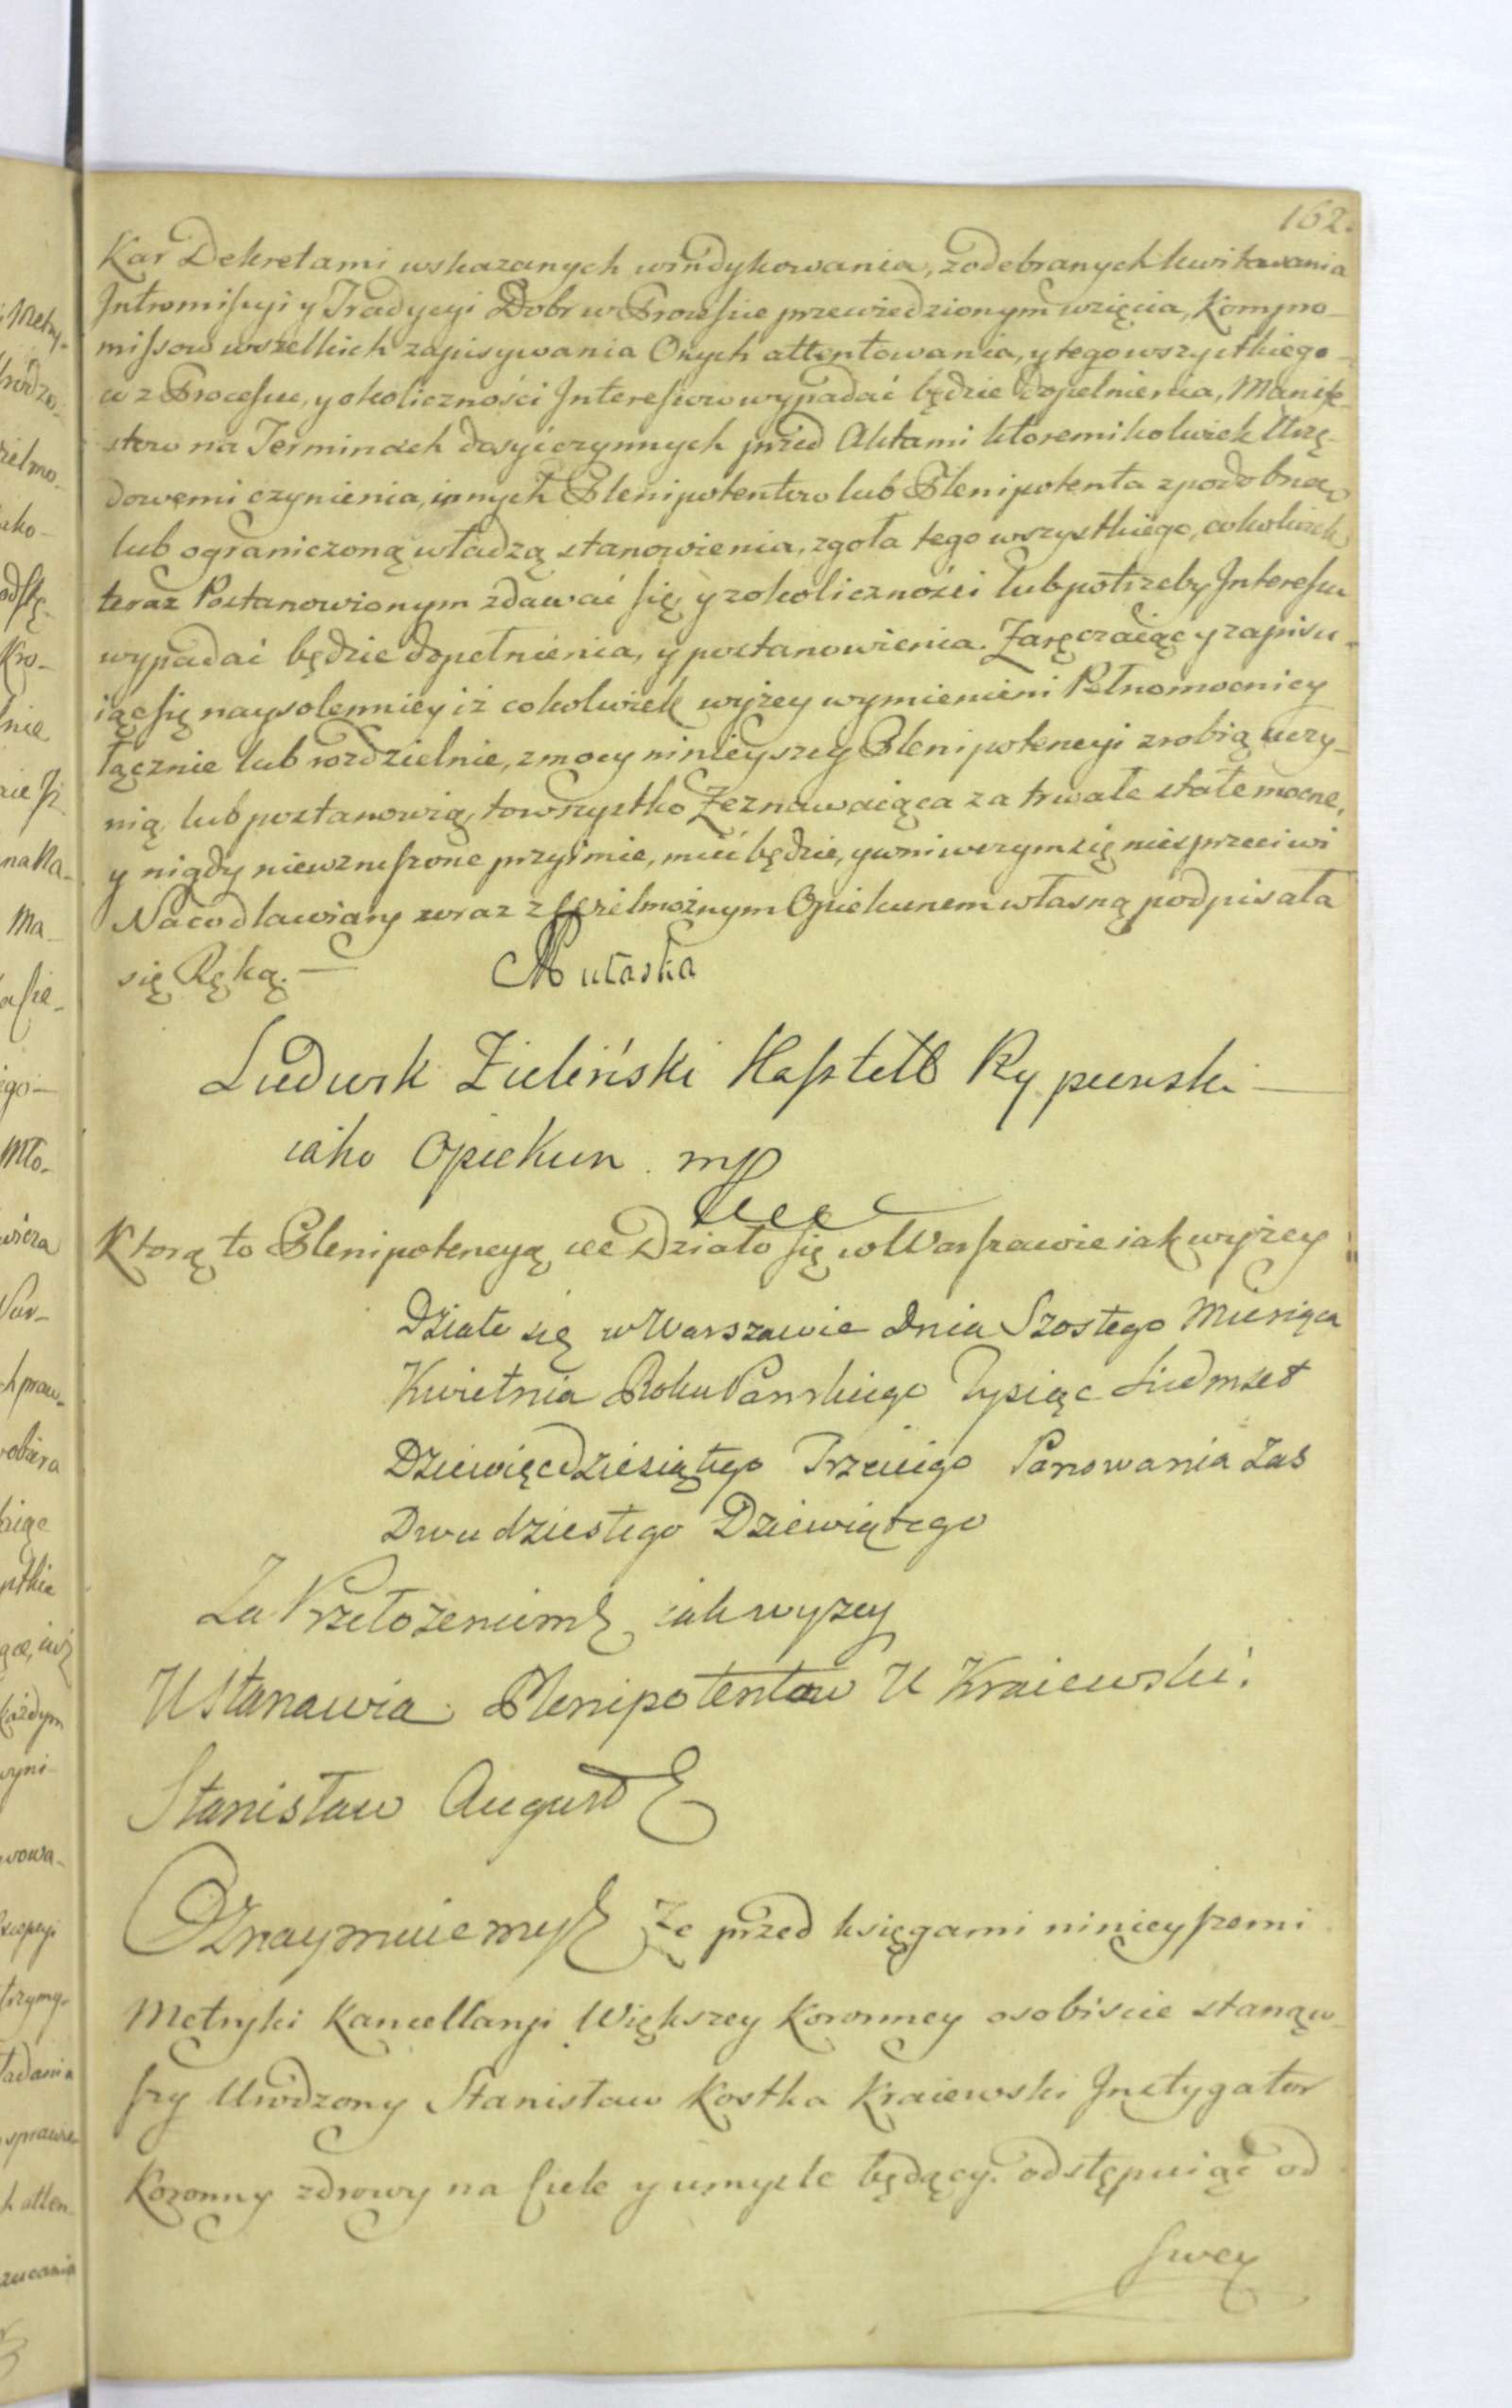 162.
Kar Dekretami wskazanych windykowania, zodebranych kwitowania
Intromissyi y Tradycyi Dobr w Processie przewiedzionym wzięcia, Kompro-
missow wszelkich zapisywania Onych attentowania, y tego wszystkiego
co z Processu, y okoliczności Interessow wypadać będzie dopełnienia, Manife-
stow na Terminach dosyićczynnych przed Aktami ktoremikolwiek Urzę-
dowemi czynienia, innych Plenipotentow lub Plenipotenta z podobną
lub ograniczoną władzą stanowienia, zgoła tego wszystkiego, cokolwiek
teraz Postanowionym zdawać się y z okoliczności lub potrzeby Interessu
wypadać będzie dopełnienia, y postanowienia. Zaręczaiąc y zapisu-
iąc się naysolenniey iż cokolwiek wyżey wymienieni Pełnomocnicy
łącznie lub rozdzielnie, z mocy ninieyszey Plenipotencyi zrobią uczy-
nią, lub postanowią, to wszystko Zeznawaiąca za trwałe stałe mocne,
y nigdy niewzruszone przyimie, mieć będzie, y w niwczym się niesprzeciwi
Na co dla wiary wraz z Wielmożnym Opiekunem własną podpisała
się Ręką. —
Ludwik Zieliński Kasztell Rypinski —
iako Opiekun mp
Ktorą to Plenipotencyą etc Działo się w Warszawie iak wyżey
Działo się w Warszawie Dnia Szostego Miesiąca
Kwietnia Roku Panskiego Tysiąc Siedmset
Dziewięcdziesiątego Trzeciego Panowania Zas
Dwudziestego Dziewiątego
Za Przełożeniem iak wyzey
Ustanawia Plenipotentow U Kraiewski.
Stanisław August
Oznaymuiemy Ze przed księgami ninieyszemi
Metryki Kancellaryi Większey Koronney osobiscie stanąw-
szy Urodzony Stanisław Kostka Kraiewski Instygator
Koronny zdrowy na Ciele y umysle będący. odstępuiąc od
swey